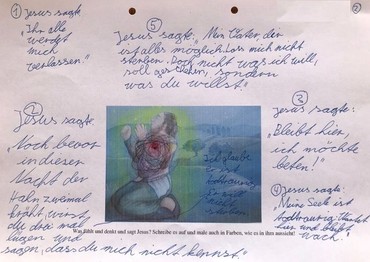 ① Jesus sagte
"Ihr alle
werdet
mich
verlassen."
②
Jesus sagte:
"Noch bevor
in dieser
Nacht der
Hahn zweimal
kräht, wirst
du drei mal
lügen und
sagen, dass du mich nicht kennst."
⑤
Jesus sagte: "Mein Vater, dir
ist alles möglich. Lass mich nicht
sterben. Doch nicht was ich will,
soll geschehen, sondern
was du willst."
③
Jesus sagte:
"Bleibt hier,
ich möchte
beten!"
④ Jesus sagte:
"Meine Seele ist
todtraurig.
hier und bleibt
wach!"
Ich glaube
er
todtraurig
Was fühlt und denkt und sagt Jesus? Schreibe es auf und male auch in Farben, wie es in ihm aussieht!